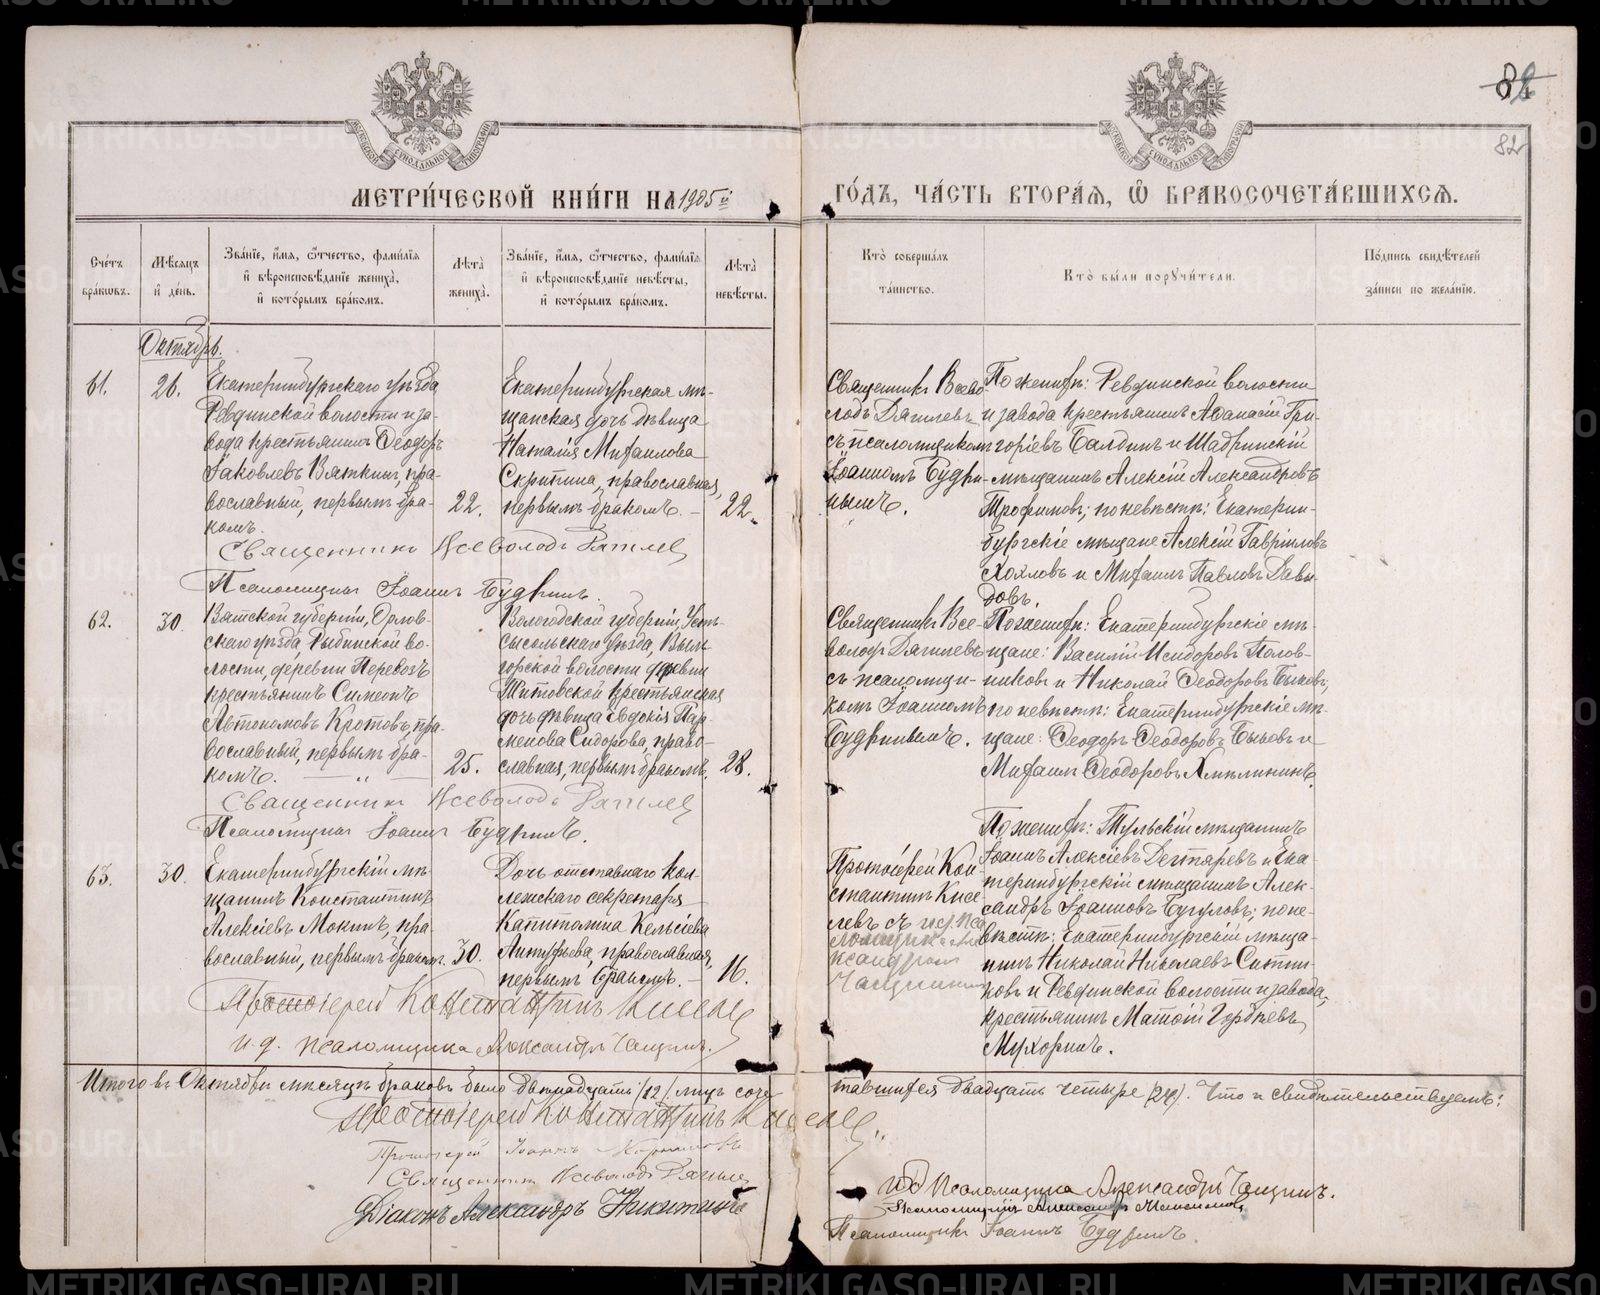 82
МЕТРИ́ЧЕСКОЙ КНИ́ГИ НА 1905й ГО́ДЪ, ЧА́СТЬ ВТОРА́Я, Ѡ БРАКОСОЧЕТА́ВШИХСЯ.
Сче́тъ бра́кѡвъ.
Мѣ́сяцъ и҆ де́нь.
Зва́нїе, и҆́мя, ѻ҆́тчество, фами́лїя и҆ вѣроисповѣ́данїе жениха̀, и҆ кото́рымъ бра́комъ.
Лѣ́та жениха̀.
Зва́нїе, и҆́мя, ѻ҆́тчество, фами́лїя и҆ вѣроисповѣ́данїе невѣ́сты, и҆ кото́рымъ бра́комъ.
Лѣ́та невѣ́сты.
Кто̀ соверша́лъ та́инство.
Кто̀ бы́ли поручи́тели.
По́дпись свидѣ́телей за́писи по жела́нїю.
Октябрь.
61.
26.
Екатеринбургскаго уѣзда
Ревдинской волости и за-
вода крестьянинъ Ѳеодоръ
Іаковлевъ Вяткинъ, пра-
вославный, первымъ бра-
комъ.
22.
Екатеринбургская мѣ-
щанская дочь дѣвица
Наталія Михаилова
Скрипина, православная,
первымъ бракомъ. –
22.
Священникъ Всево-
лодъ
съ псаломщикомъ
Іоанномъ Будри-
нымъ.
По женихѣ: Ревдинской волости
и завода крестьянинъ Аѳанасій Гри-
горіевъ Балдинъ и Шадринскій
мѣщанинъ Алексій Александровъ
Трофимовъ; по невѣстѣ: Екатерин-
бургскіе мѣщане Алексій Гавріиловъ
Хохловъ и Михаилъ Павловъ Давы-
довъ.
Священникъ Всеволодъ
Псаломщикъ Іоаннъ Будринъ.
62.
30.
Вятской губерніи, Орлов-
скаго уѣзда, Рыбинской во-
лости, деревни Перевозъ
крестьянинъ Симеонъ
Автономовъ Кротовъ, пра-
вославный, первымъ бра-
комъ. — „ —
25.
Вологодской губерніи, Усть-
сысольскаго уѣзда, Выль-
горской волости деревни
Титовской крестьянская
дочь дѣвица Евдокія Пар-
менова Сидорова, право-
славная, первымъ бракомъ.
28.
Священникъ Все-
володъ
съ псаломщи-
комъ Іоанномъ
Будринымъ.
По женихѣ: Екатеринбургскіе мѣ-
щане: Василій Исидоровъ Полов-
никовъ и Николай Ѳеодоровъ Быковъ;
по невѣстѣ: Екатеринбургскіе мѣ-
щане: Ѳеодоръ Ѳеодоровъ Быковъ и
Михаилъ Ѳеодоровъ
Священникъ Всеволодъ
Псаломщикъ Іоаннъ Будринъ.
63.
30.
Екатеринбургскій мѣ-
щанинъ Константинъ
Алексіевъ Мокинъ, пра-
вославный, первымъ бракомъ.
30.
Дочь отставного кол-
лежскаго секретаря
Капитолина Кельсіева
православная,
первымъ бракомъ. –
16.
Протоіерей Кон-
стантинъ Кисе-
левъ съ и. д. пса-
ломщика Але-
ксандромъ
По женихѣ: Тульскій мѣщанинъ
Іоаннъ Алексіевъ Дегтяревъ и Ека-
теринбургскій мѣщанинъ Алек-
сандръ Іоанновъ по не-
вѣстѣ: Екатеринбургскій мѣща-
нинъ Николай Николаевъ Ситни-
ковъ и Ревдинской волости и завода,
крестьянинъ Матѳій Гордѣевъ
Мухоринъ.
Протоіерей Константинъ Киселевъ
и. д. псаломщика Александръ
Итого въ Октябрѣ мѣсяцѣ браковъ было двѣнадцать /12/, лицъ соче-
тавшихся двадцать четыре (24). Что и свидѣтельствуемъ:
Протоіерей Константинъ Киселевъ
Протоіерей Іоаннъ
Священникъ Всеволодъ
Діаконъ Александръ Никитинъ
И. д. Псаломщика Александръ
Псаломщикъ Александръ
Псаломщикъ Іоаннъ Будринъ.
METRIKI.GASO-URAL.RU